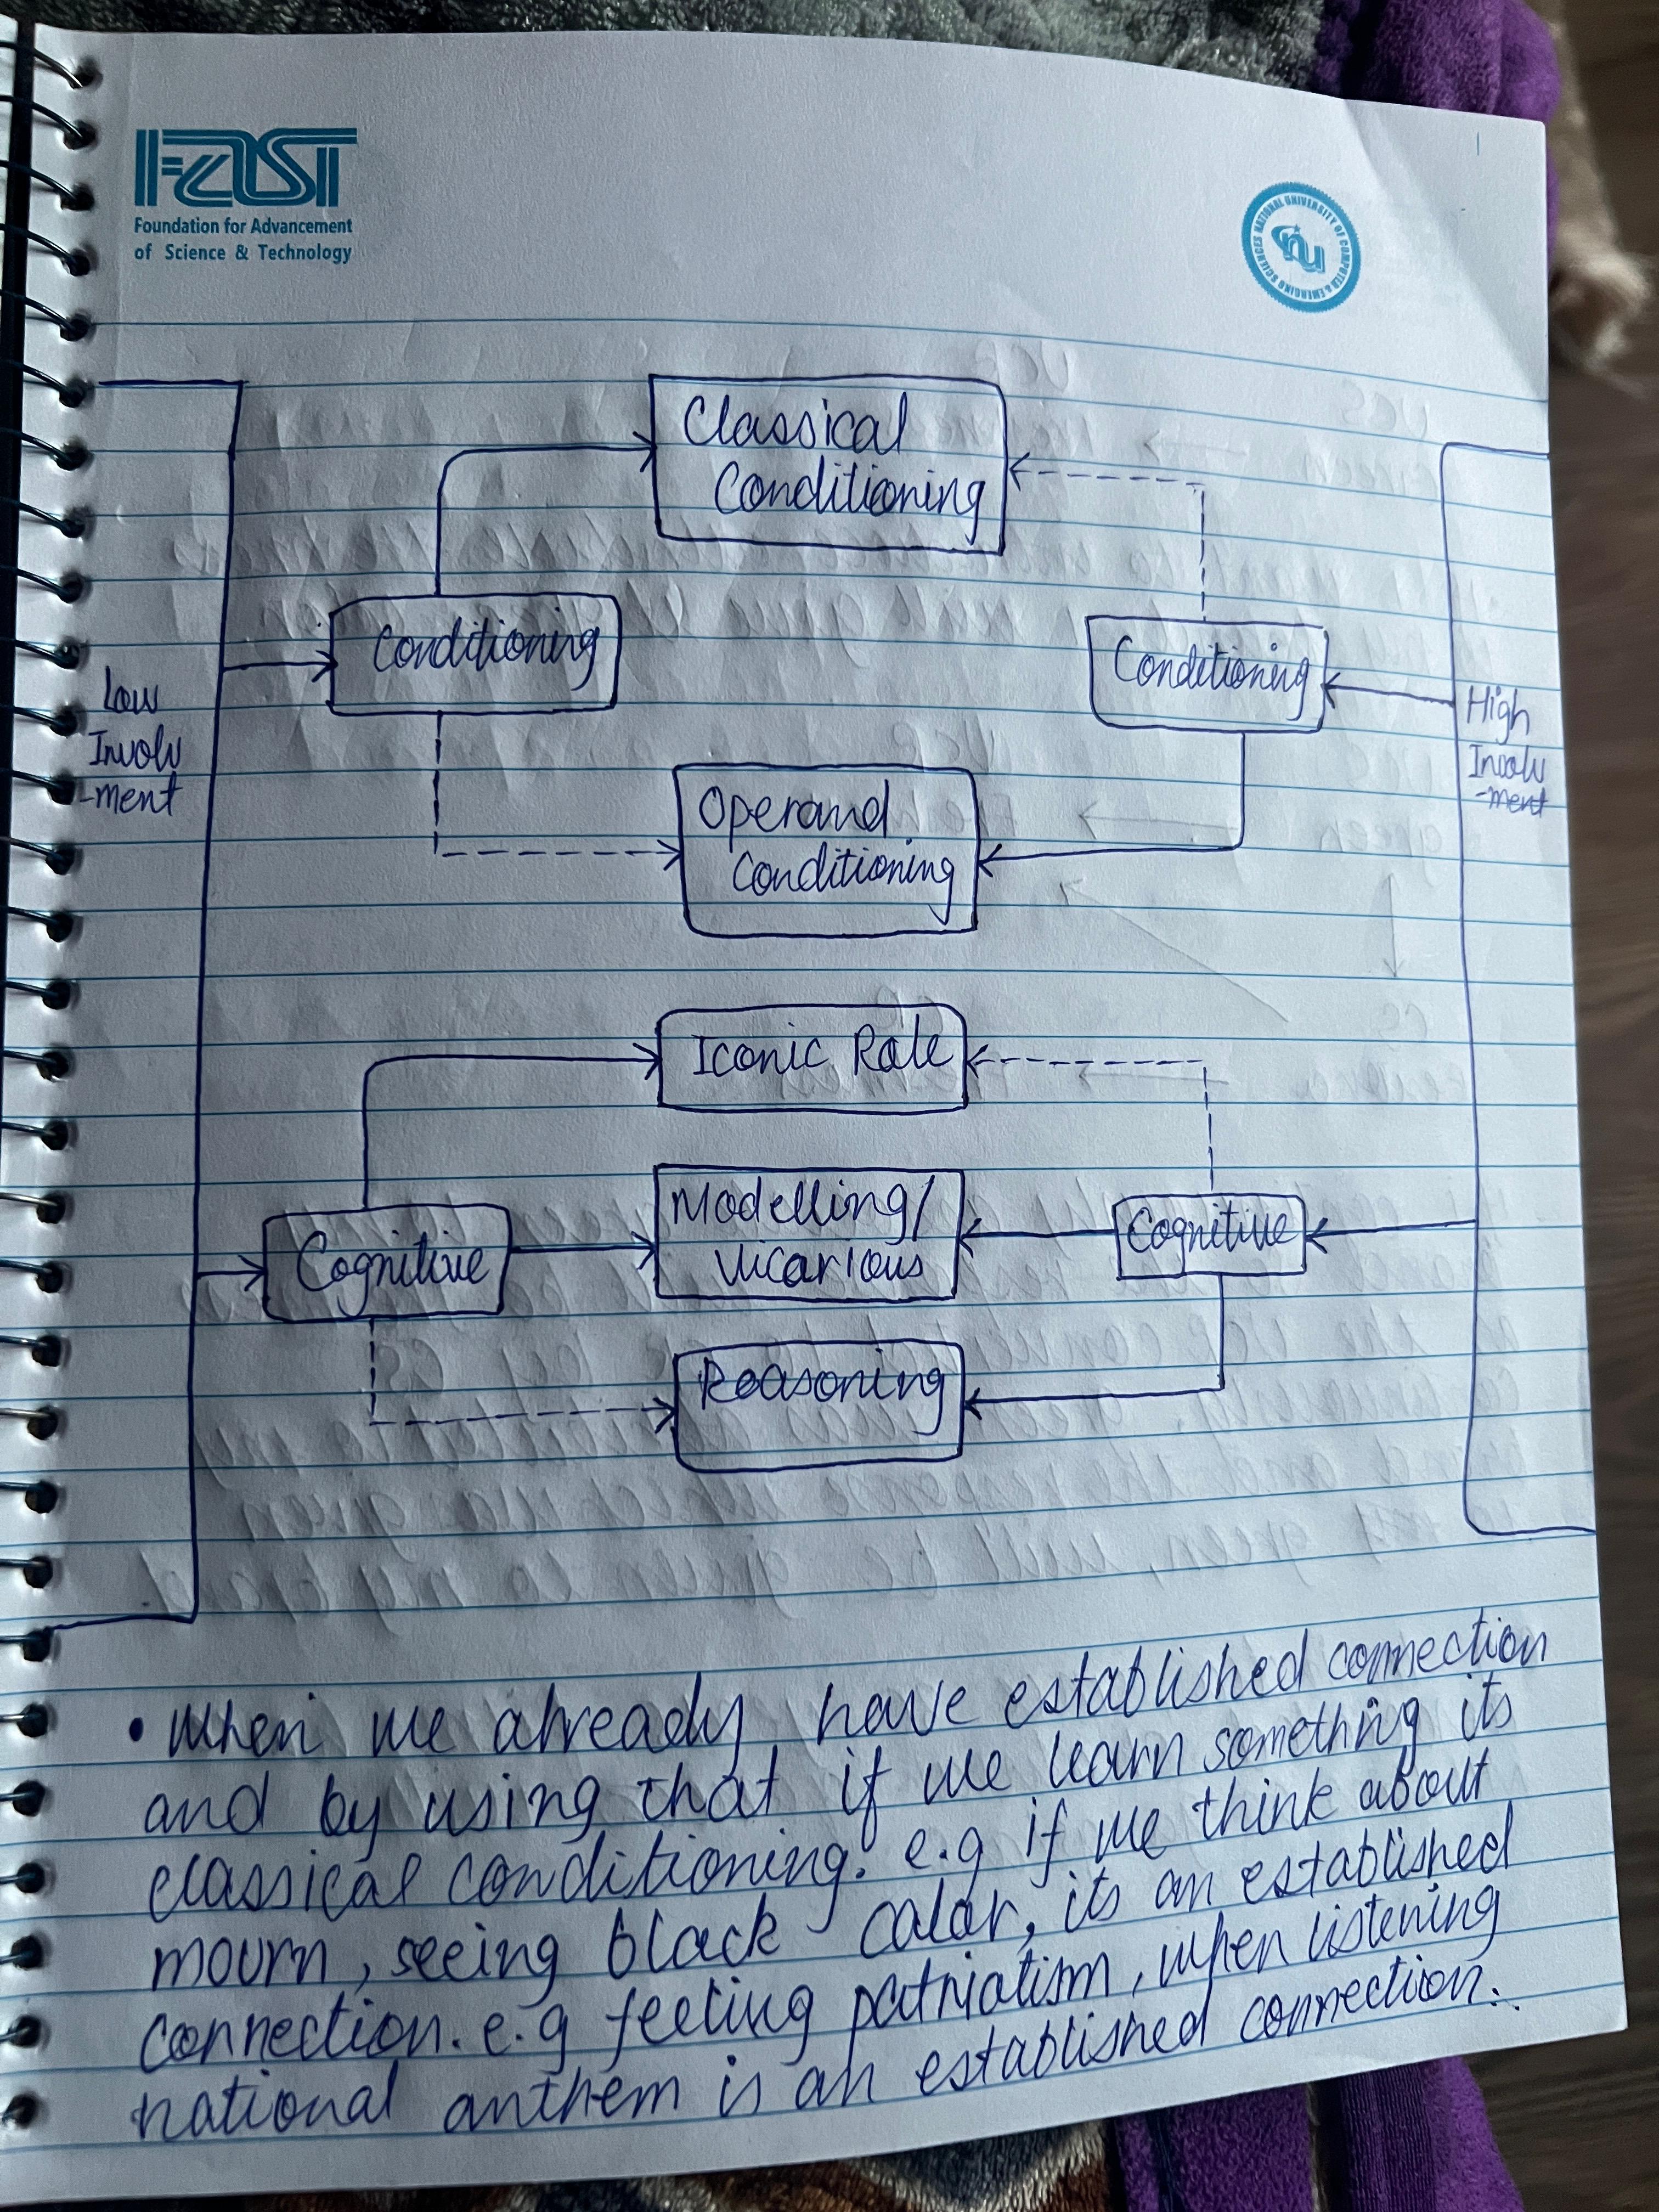 FAST
Foundation for Advancement
of Science & Technology
NATIONAL UNIVERSITY OF COMPUTER & EMERGING SCIENCES
nu
Classical
Conditioning
Conditioning
Conditioning
Low
Involv
-ment
High
Involv
-ment
Operand
Conditioning
Iconic Rote
Modelling/
Vicarious
Cognitive
Cognitive
Reasoning
• When we already have established connection
and by using that if we learn something its
classical conditioning. e.g if we think about
mourn, seeing black color, its an established
connection. e.g feeling patriotism, when listening
national anthem is an established connection.